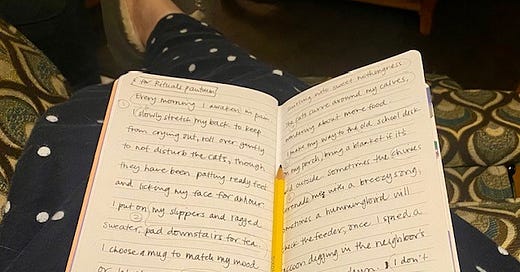 for Rituals
Every morning I awaken
I slowly stretch my back to keep
from crying out, roll over gently
to not disturb the cats, though
they have been patting ready feet
and licking my face for an hour
I put on my slippers and ragged
②
sweater, pad downstairs for tea.
I choose a mug to match my mood
into sweet nothingness
The cats curve around my calves,
wondering about more food
I make my way to the old school desk
my porch, bring a blanket if it's
outside. Sometimes the chimes
me with a breezy song,
sometimes a hummingbird will
the feeder; once I spied a
digging in the neighbor's
I don't